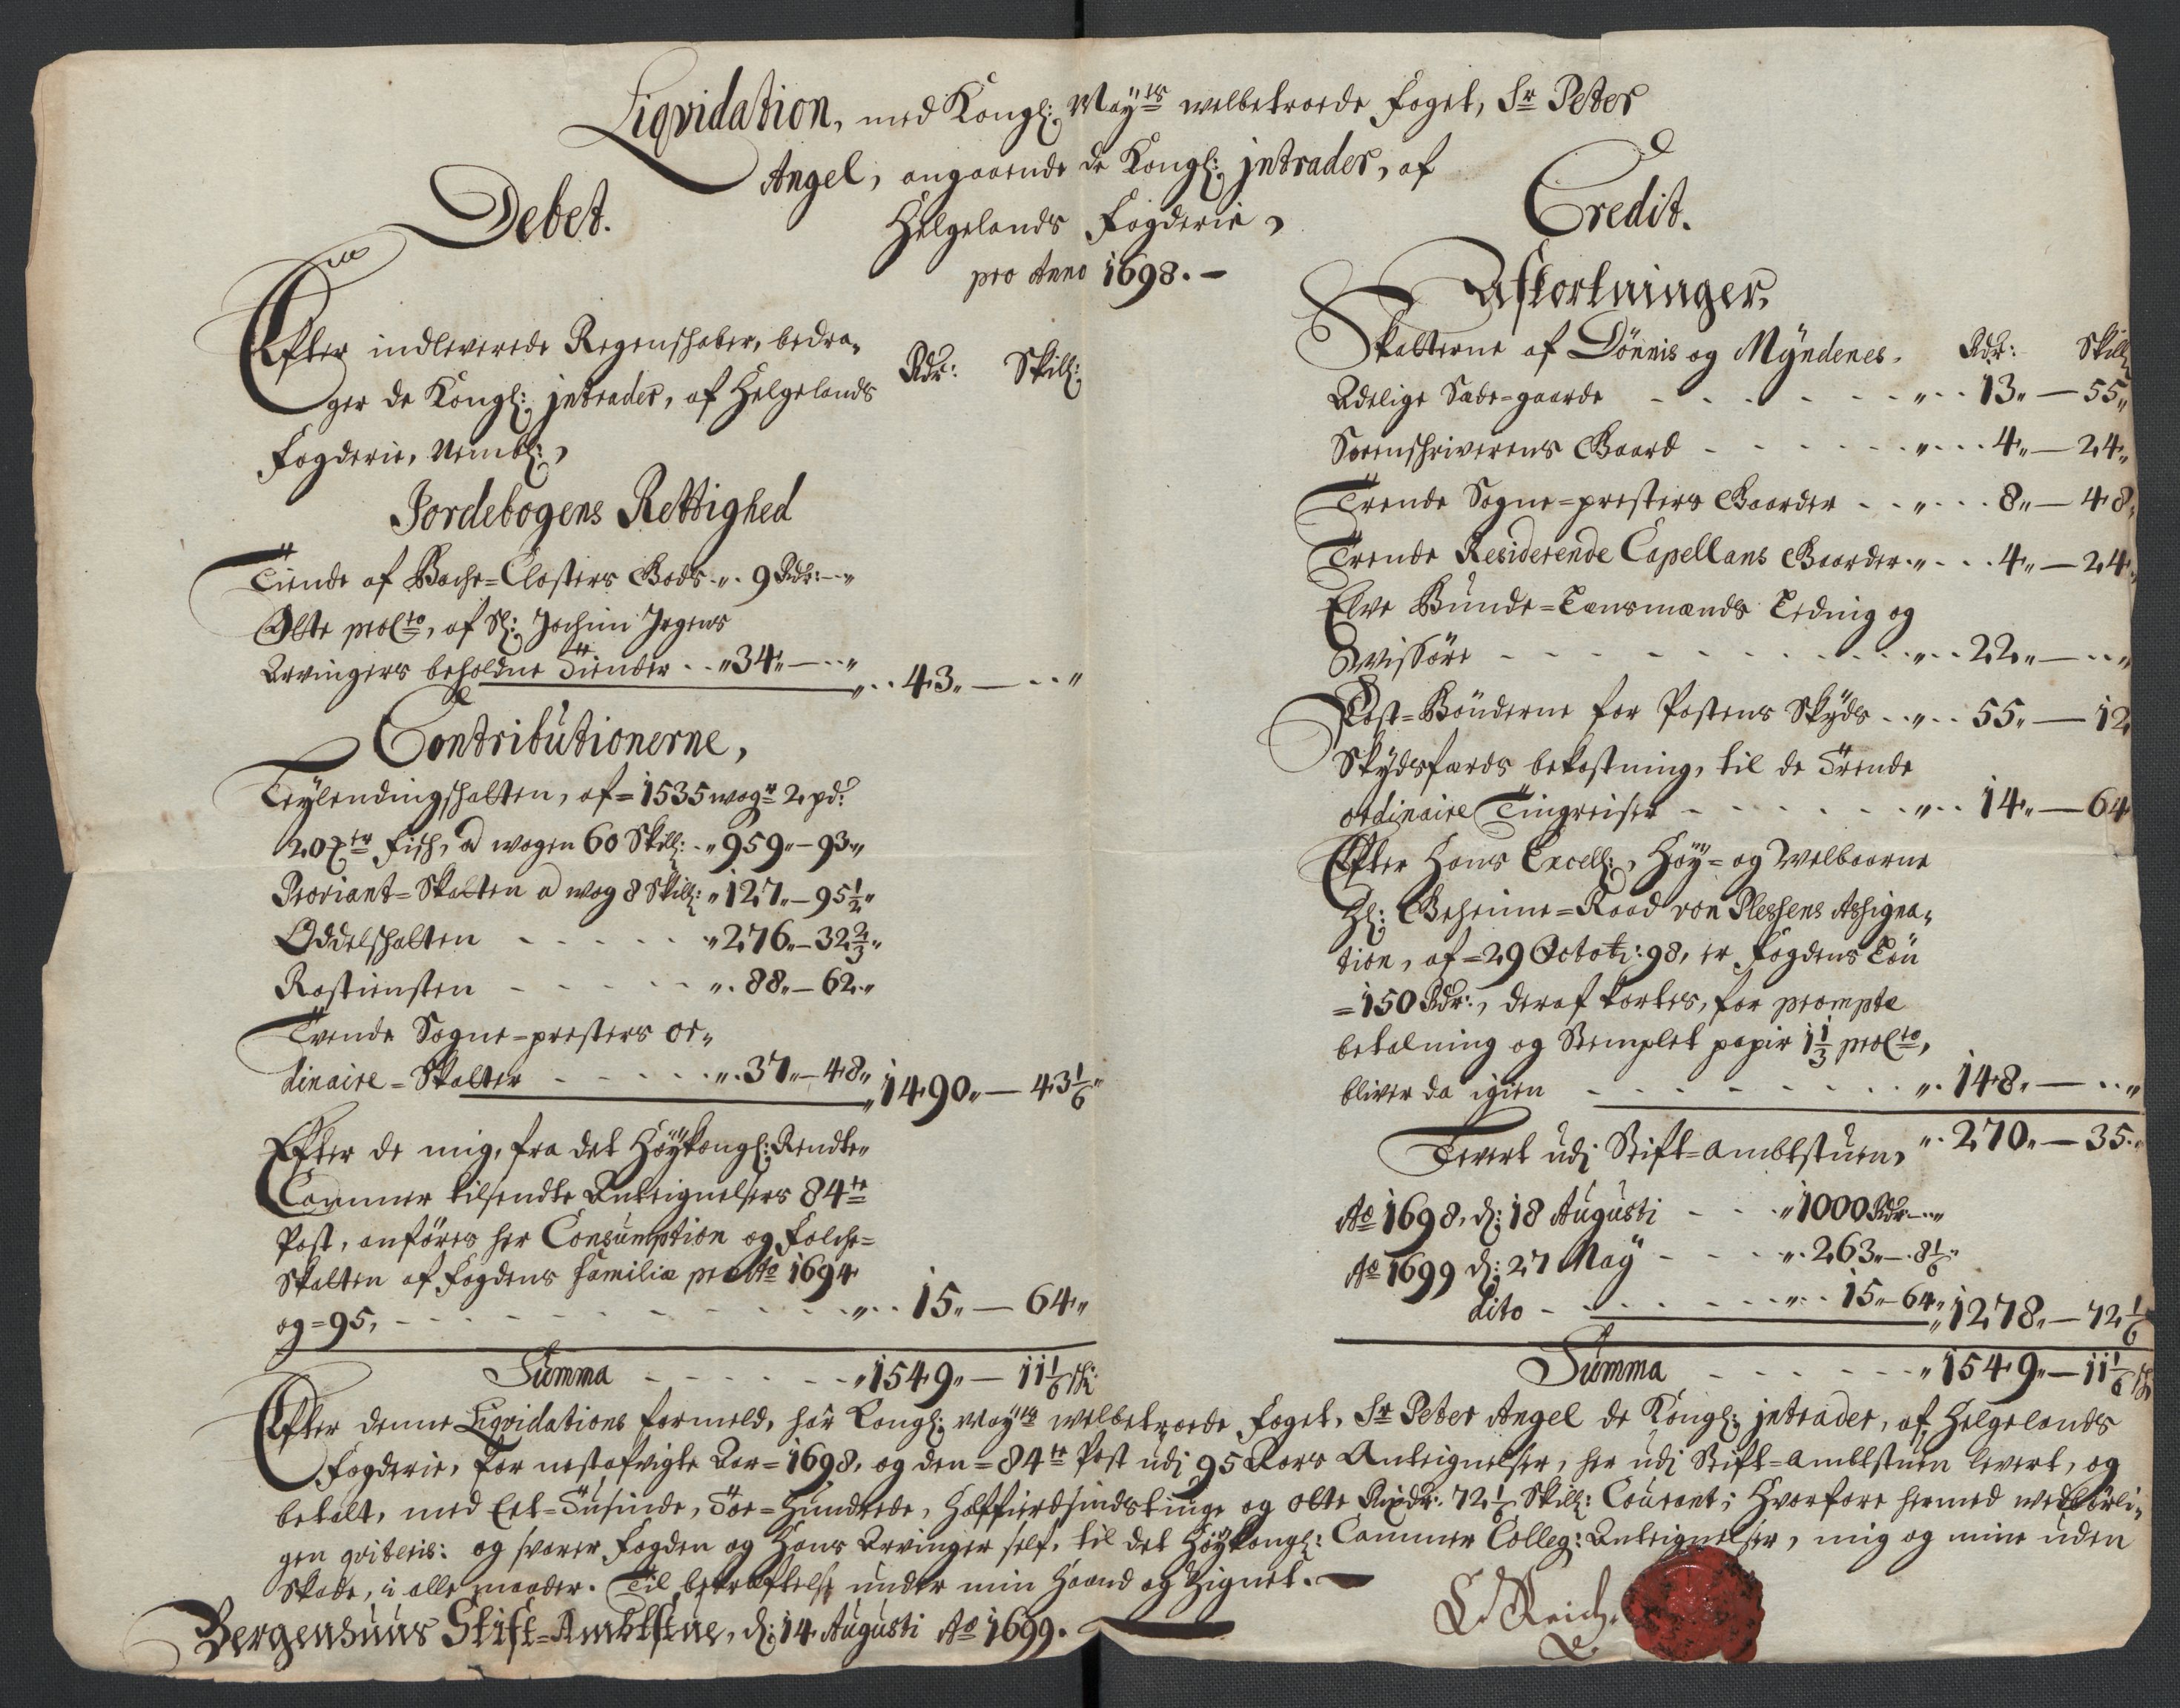 Liqvidation, med Kongl: Mayts welbetroede foget, Sr Peter
Angel, angaaende de Kongl: jntrader, af
Helgelands Fogderie,
pro Anno 1698. -
Debet.
Efter indleverede Regenskaber, bedra-
ger de Kongl: jntrader, af Helgelands
Fogderie, Nembl:,
Rdr: Skill:
Jordebogens Rettighed
Tiende af Bache-Closters Gods .. 9 Rdr: - "
Otte prolto, af Sl: Jochim Jrgens
Arvingers beholdne Tiender .. " 34 " - .. "
" .. 43 " - .. "
Contributionerne,
Leylendingskatten, af = 1535 wogr 2 pd:
20 ter fisk, a wogen 60 Skill: .. " 959 " - 93 "
Proviant-Skatten a wog 8 Skill: " 127 " - 95 1/2 "
Oddelskatten - - - - - " 276 " - 32 2/3 "
Rostiensten - - - - - " . 88 " - 62 "
Trende Sogne-presters or-
dinaire-Skatter - - - - - " . 37 " - 48 "
" 1490 " - 43 1/6 "
Efter de mig, fra det Höykongl: Rendte-
Cammer tilsendte Anteignelsers 84te
Post, anföres her Consumption og Folche-
Skatten af Fogdens familie pro Ao 1694
og = 95, - - - - - - - - " .. 15 " - 64 "
Summa - - - - - " 1549 " - 11 1/6 sk:
Credit.
Afkortninger,
Skatterne af Dönnis og Myndenes. Rdr: Skill:
Adelige Sæde-gaarde - - - - - - " .. 13 " - 55 "
Sorenskriverens Gaard - - - - - " ... 4 " - 24 "
Trende Sogne-presters Gaarder - - " ... 8 " - 48 "
Trende Residerende Capellans Gaarder " ... 4 " - 24 "
Elve Bunde-Lensmænds Lednig og
- - - - - - - - " .. 22 " - .. "
Post-Bönderne for Postens Skyds .. " .. 55 " - 12
Skydsfærds bekostning, til de Trende
ordinaire Tingreiser - - - - - " .. 14 " - 64
Efter Hans Excell:, Höy- og Welbaarne
Hl: Geheime-Raad von Plessens Assigna-
tion, af = 29 Octobr: 98, er Fogdens Lön
= 150 Rdr:, deraf kortes, for prompte
betalning og Stemplet papir 1 1/3 prolto,
bliver da igien - - - - - - " . 148 " - .. "
" . 270 " - 35 "
Levert udj Stift-ambtstuen,
Ao 1698, d: 18 Augusti - - " 1000 Rdr - "
Ao 1699 d: 27 May - - - " . 263 " - 8 1/6 "
dito - - - - - - " .. 15 " - 64 " " 1278 " - 72 1/6
Summa - - - - - " 1549 " - 11 1/6 sk
Efter denne Liqvidations formeld, har Kongl: Mayts welbetroede foget, Sr Peter Angel de Kongl: jntrader, af Helgelands
Fogderie, for nestafvigte Aar = 1698, og den = 84te Post udj 95 Aars Anteignelser, her udj Stift-ambtstuen levert, og
betalt, med Eet-Tusinde, Toe-Hundrede, Halffierdsindstiuge og otte Rixdr: 72 1/6 Skill: Courant; Hvorfore hermed wedbörli-
gen qviteris: og svarer Fogden og Hans Arvinger self, til det Höykongl: Cammer Colleg: Anteignelser, mig og mine uden
Skade, i alle maader. Til bekræftelse under min Haand og Zignet. -
Bergenhuus Stift-Ambtstue, d: 14 Augusti Ao 1699.